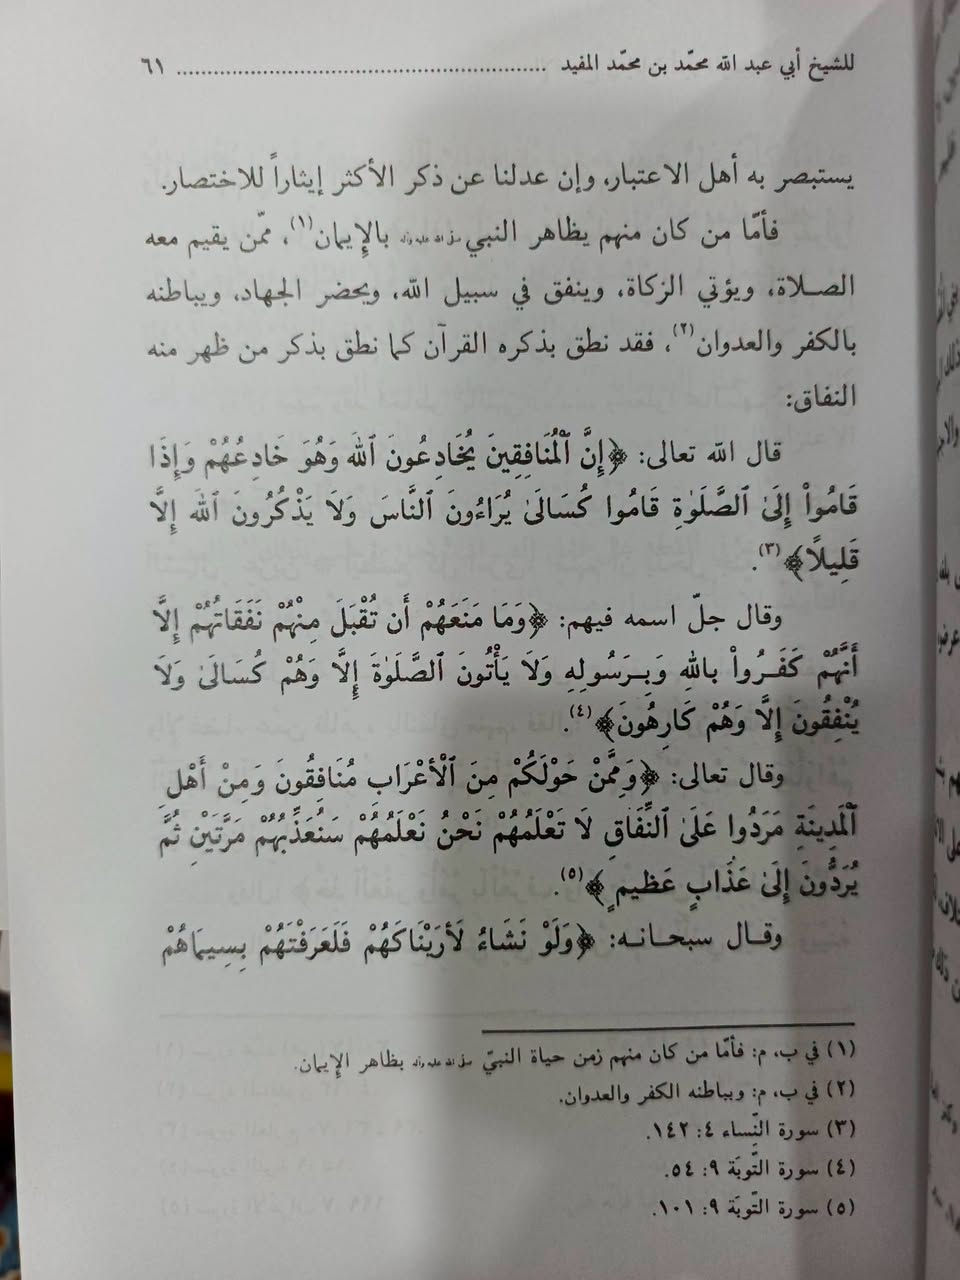 للشيخ أبي عبد الله محمّد بن محمّد المفيد ........................................................ ٦١
يستبصر به أهل الاعتبار، وإن عدلنا عن ذكر الأكثر إيثاراً للاختصار.
فأمّا من كان منهم يظاهر النبي صلى الله عليه وآله بالإيمان(١)، ممّن يقيم معه
الصلاة، ويؤتي الزكاة، وينفق في سبيل الله، ويحضر الجهاد، ويباطنه
بالكفر والعدوان(٢)، فقد نطق بذكره القرآن كما نطق بذكر من ظهر منه
النفاق:
قال الله تعالى: ﴿إِنَّ ٱلْمُنَافِقِينَ يُخَادِعُونَ ٱللهَ وَهُوَ خَادِعُهُمْ وَإِذَا
قَامُواْ إِلَىٰ ٱلصَّلَوٰةِ قَامُوا كُسَالَىٰ يُرَاءُونَ ٱلنَّاسَ وَلَا يَذْكُرُونَ ٱللهَ إِلَّا
قَلِيلًا﴾(٣).
وقال جلّ اسمه فيهم: ﴿وَمَا مَنَعَهُمْ أَن تُقْبَلَ مِنْهُمْ نَفَقَاتُهُمْ إِلَّا
أَنَّهُمْ كَفَرُواْ بِاللهِ وَبِرَسُولِهِ وَلَا يَأْتُونَ ٱلصَّلَوٰةَ إِلَّا وَهُمْ كُسَالَىٰ وَلَا
يُنْفِقُونَ إِلَّا وَهُمْ كَارِهُونَ﴾(٤).
وقال تعالى: ﴿وَمِمَّنْ حَوْلَكُمْ مِنَ ٱلْأَعْرَابِ مُنَافِقُونَ وَمِنْ أَهْلِ
ٱلْمَدِينَةِ مَرَدُوا عَلَىٰ ٱلنِّفَاقِ لَا تَعْلَمُهُمْ نَحْنُ نَعْلَمُهُمْ سَنُعَذِّبُهُمْ مَرَّتَيْنِ ثُمَّ
يُرَدُّونَ إِلَىٰ عَذَابٍ عَظِيمٍ﴾(٥).
وقال سبحانه: ﴿وَلَوْ نَشَاءُ لَأَرَيْنَاكَهُمْ فَلَعَرَفْتَهُمْ بِسِيمَاهُمْ
(١) في ب، م: فأمّا من كان منهم زمن حياة النبيّ صلى الله عليه وآله بظاهر الإيمان.
(٢) في ب، م: ويباطنه الكفر والعدوان.
(٣) سورة النِّساء ٤: ١٤٢.
(٤) سورة التَّوبَة ٩: ٥٤.
(٥) سورة التَّوبَة ٩: ١٠١.